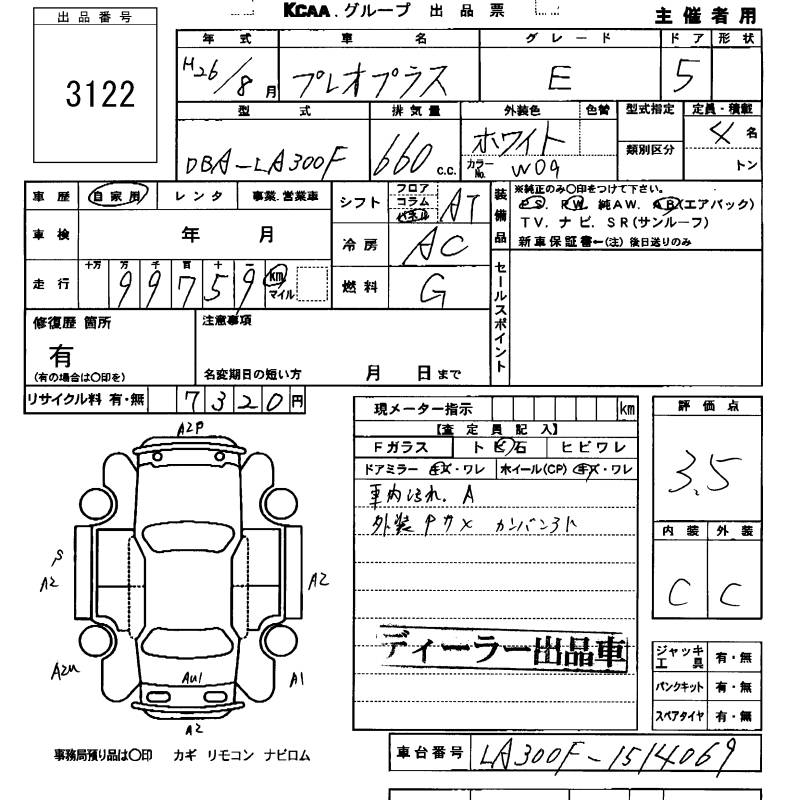 KCAA.グループ 出品票
主催者用
出品番号
3122
年式 車名 グレード ドア 形状
H26/8月 プレオプラス E 5
型式 排気量 外装色 色替 型式指定 定員・積載
DBA-LA300F 660 c.c. ホワイト 類別区分 4名
カラーNo. W09 トン
車歴 自家用 レンタ 事業.営業車
シフト フロア コラム パネル AT
装備品 ※純正のみ〇印をつけて下さい。
PS. PW. 純AW. AB(エアバック)
TV. ナビ. SR(サンルーフ)
新車保証書←(注) 後日送りのみ
車検 年 月
冷房 AC
走行 十万 万 千 百 十 一
99759 km マイル
燃料 G
セールスポイント
修復歴 箇所
有
(有の場合は〇印を)
注意事項
名変期日の短い方 月 日まで
リサイクル料 有・無 7320円
現メーター指示 km
【査定員記入】
Fガラス ト ビ 石 ヒビワレ
ドアミラー キズ・ワレ ホイール(CP) キズ・ワレ
車内よごれ. A
外装 カンバン
ディーラー出品車
評価点
3.5
内装 外装
C C
ジャッキ工具 有・無
パンクキット 有・無
スペアタイヤ 有・無
A2P
A2
A2
A2u
AU1
A1
A2
事務局預り品は〇印 カギ リモコン ナビロム
車台番号 LA300F-1514069